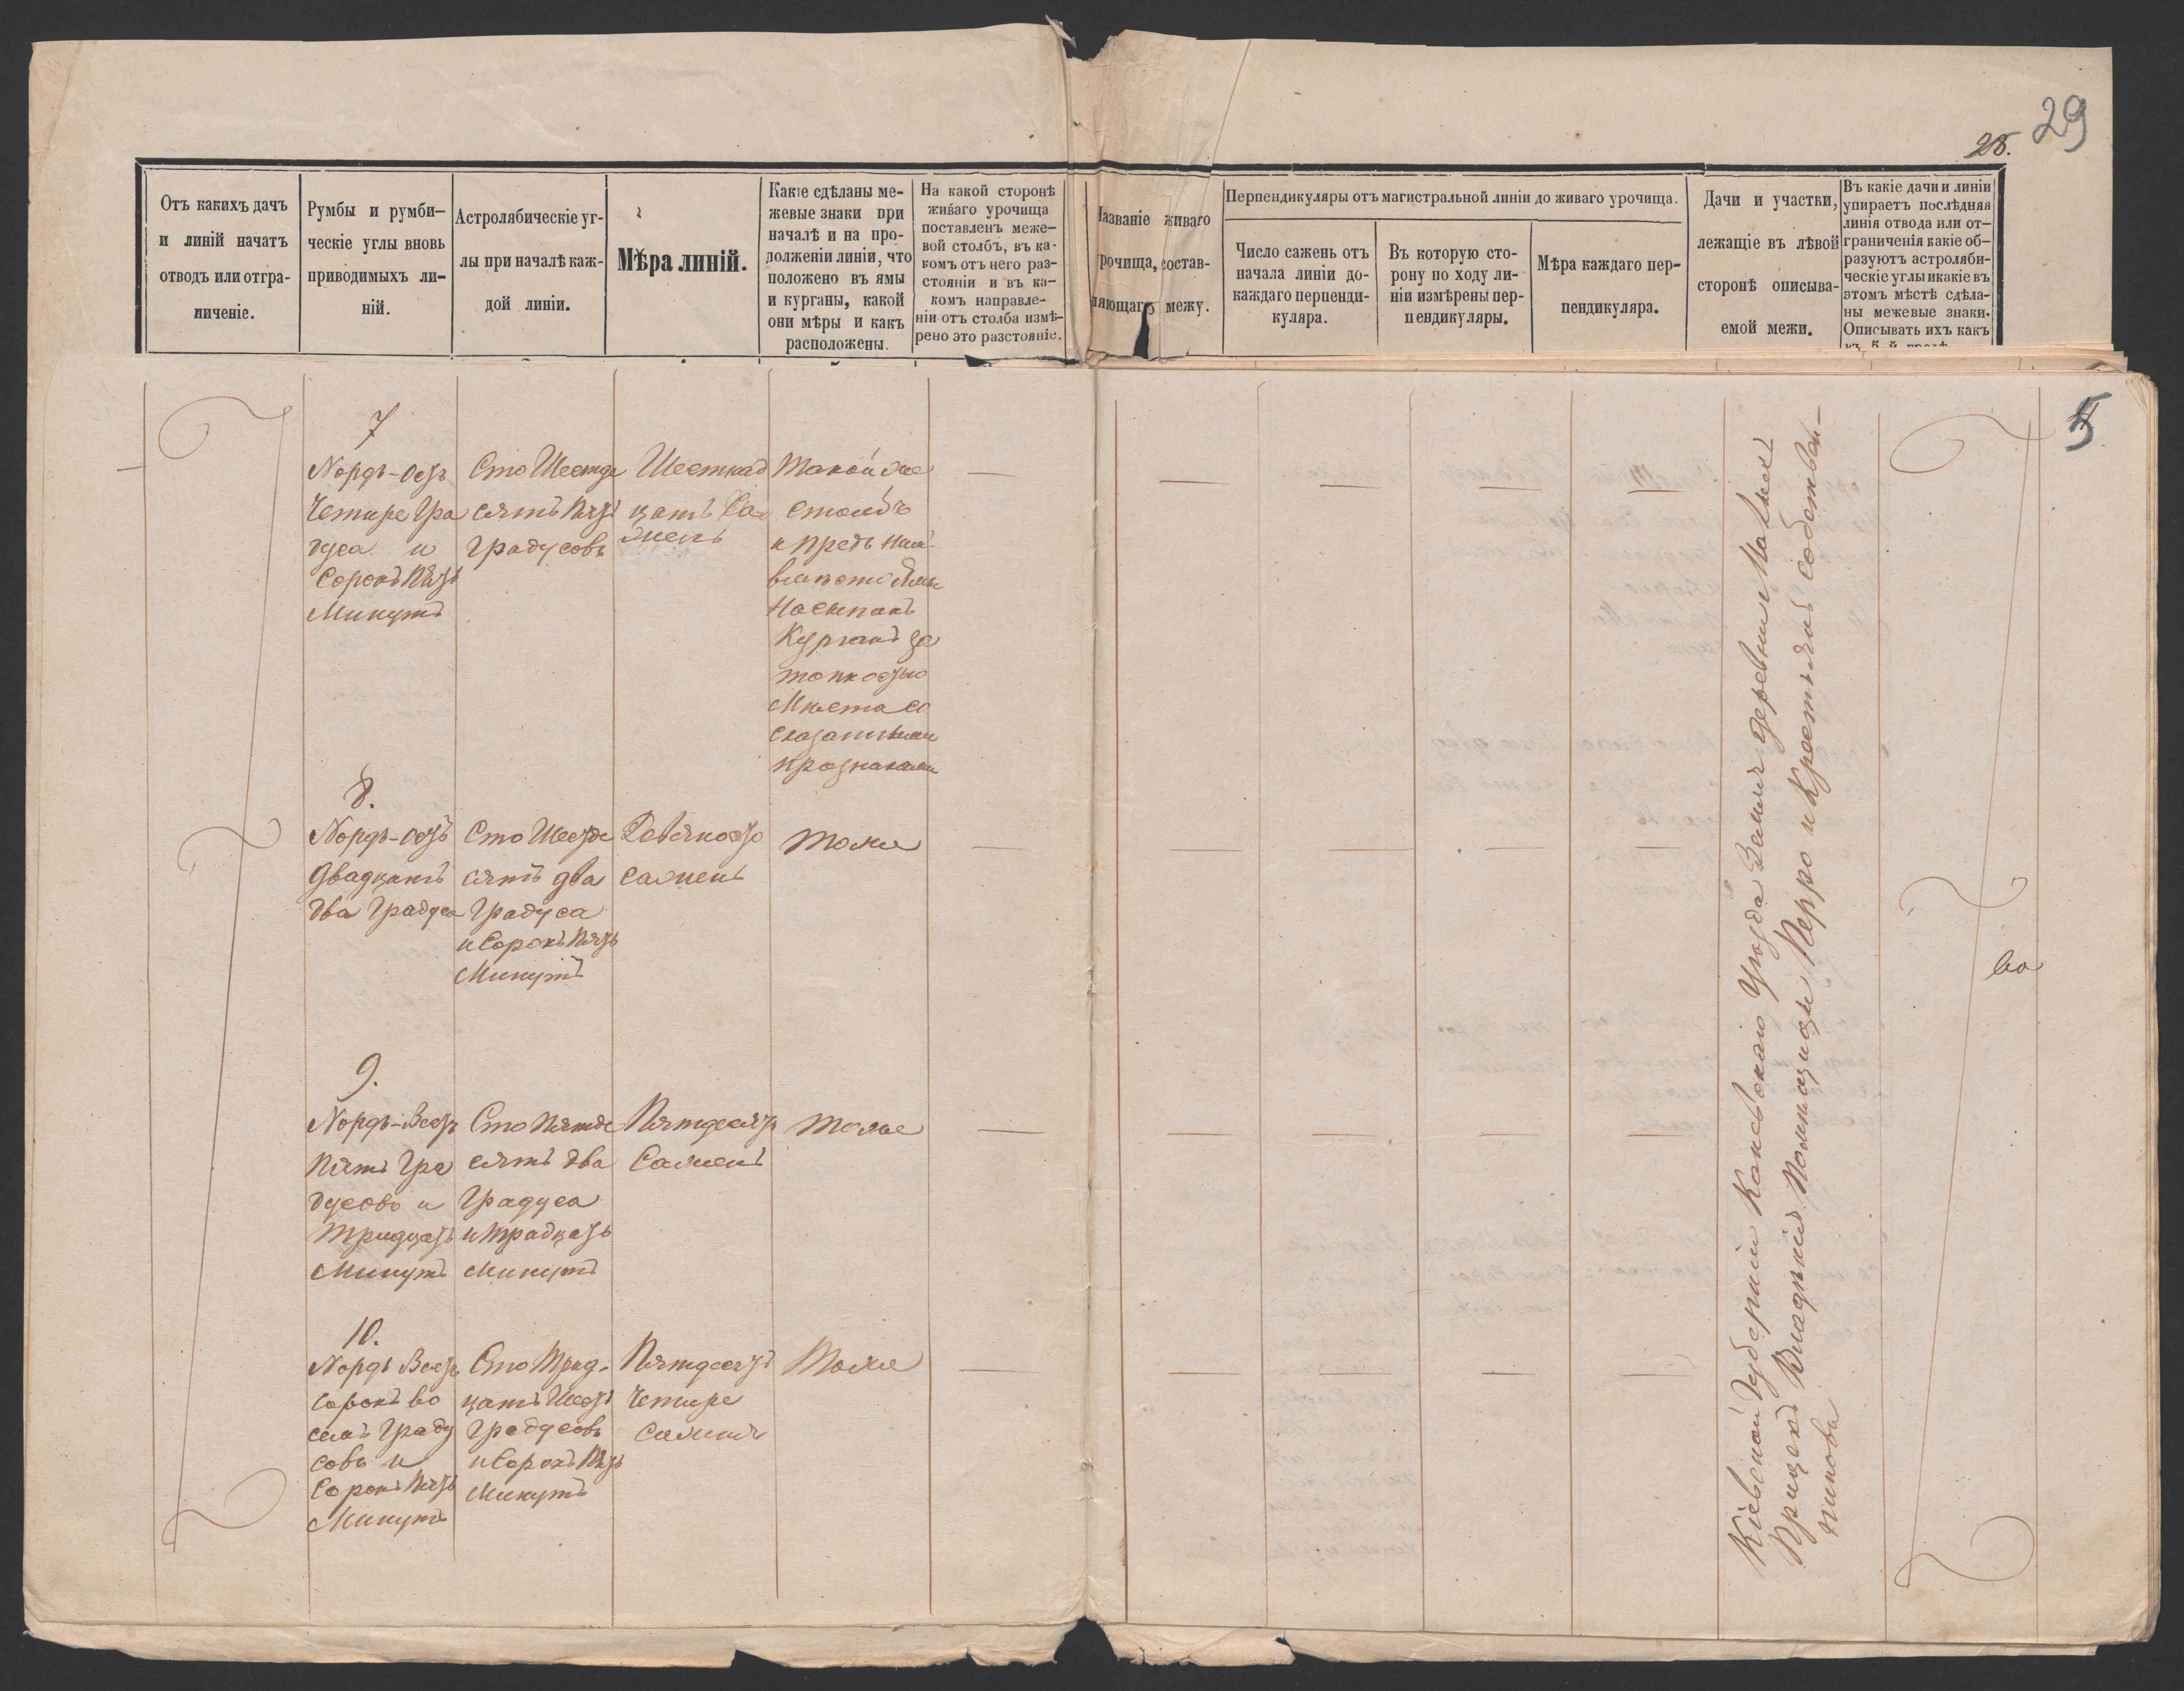 29
28.
Отъ какихъ дачъ
и линій начатъ
отводъ или отгра-
ниченіе.
Румбы и румби-
ческіе углы вновь
приводимыхъ ли-
ній.
Астролябическіе уг-
лы при началѣ каж-
дой линіи.
Мѣра линій.
Какіе сдѣланы ме-
жевые знаки при
началѣ и на про-
долженіи линіи, что
положено въ ямы
и курганы, какой
они мѣры и какъ
расположены.
На какой сторонѣ
живаго урочища
поставленъ меже-
вой столбъ, въ ка-
комъ отъ него раз-
стояніи и въ ка-
комъ направле-
ніи отъ столба измѣ-
рено это разстояніе.
Названіе живаго
урочища, состав-
ляющаго межу.
Перпендикуляры отъ магистральной линіи до живаго урочища.
Число сажень отъ
начала линіи до-
каждаго перпенди-
куляра.
Въ которую сто-
рону по ходу ли-
ніи измѣрены пер-
пендикуляры.
Мѣра каждаго пер-
пендикуляра.
Дачи и участки,
лежащіе въ лѣвой
сторонѣ описыва-
емой межи.
Въ какіе дачи и линіи
упираетъ послѣдняя
линія отвода или от-
граниченія какіе об-
разуютъ астроляби-
ческіе углы и какіе въ
этомъ мѣстѣ сдѣла-
ны межевые знаки.
Описывать ихъ какъ
5
7
Nордъ-Остъ
Четыре Гра
дуса и
Сорокъ Пять
Минутъ
Сто Шестьде
сятъ Пять
Градусовъ
Шестнад
цать Са-
жень
Такой же
столбъ
и предъ нимъ
вмѣсто Ямы
Насыпанъ
Курганъ за
топкостью
Мѣста со
сказанными
признаками
8.
Nордъ-Остъ
двадцать
два Градуса
Сто Шестьде
сятъ два
Градуса
и Сорокъ Пять
Минутъ
Девяносто
сажень
тоже
9.
Nордъ-Вестъ
Пять Гра
дусовъ и
тридцать
Минутъ
Сто Пятьде
сятъ два
Градуса
и тридцать
Минутъ
Пятьдесятъ
Сажень
тоже
10.
Nордъ Вестъ
сорокъ во
семь Граду
совъ и
Сорокъ Пять
Минутъ
Сто Трид-
цать Шесть
Градусовъ
и Сорокъ Пять
Минутъ
Пятьдесятъ
Четыре
сажени
Тоже
Кіевской Губерніи Каневскаго Уѣзда Земля деревни Малыхъ
Прицекъ Владѣнія Помѣщицы Перро и Крестьянъ собствен-
никовъ